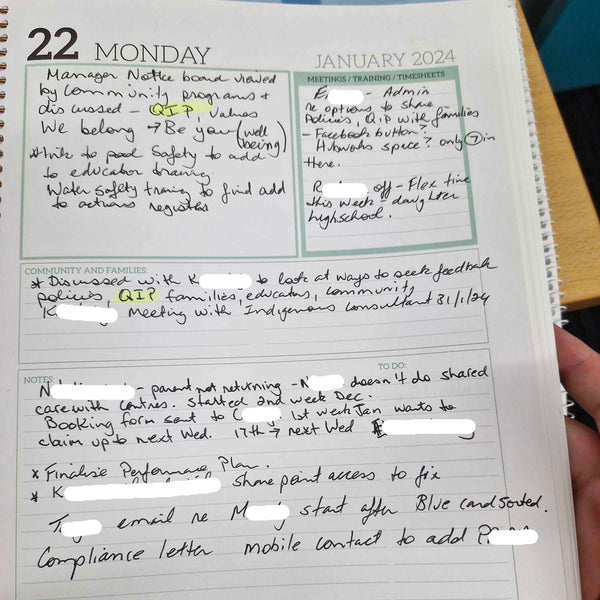 22 MONDAY
JANUARY 2024
Manager Notice board viewed
by community programs +
discussed - QIP, values
We belong → Be you (well being)
* link to pool Safety to add
to educator training.
Water safety traing to find add
to actions register
MEETINGS / TRAINING / TIMESHEETS
E - Admin
re options to share
Policies, QIP with families
- Facebook button?
Hubworks space? only 7 in
there.
R off - Flex time
this week - daughter
highschool.
COMMUNITY AND FAMILIES:
* Discussed with K to look at ways to seek feedback
policies, QIP families, educators, community
K Meeting with Indigenous Consultant 31/1/24
NOTES:
TO DO:
N - parent not returning - N doesn't do shared
care with Centres. started 2nd week Dec.
Booking form sent to C 1st week Jan wants to
claim up to next Wed. 17th → next Wed
* Finalise Performance Plan.
* K share point access to fix
T email re M start after Blue card sorted.
Compliance letter mobile contact to add P